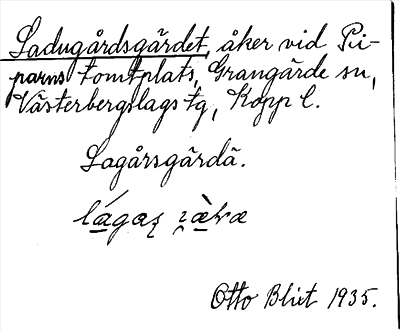 Ladugårdsgärdet, åker vid Pi-
parns tomtplats, Grangärde sn,
Västerbergslags tg, Kopp l.
Lagårsgärdä.
Otto Blixt 1935.